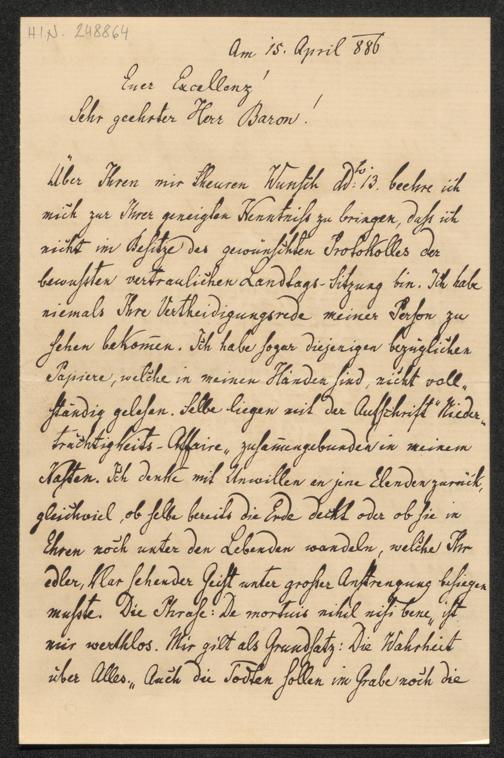 H.I.N. 248864
Am 15. April 886
Euer Excellenz!
Sehr geehrter Herr Baron!
Über Ihren mir theuren Wunsch ddto 13. beehre ich
mich zur Ihrer geneigten Kenntniß zu bringen, daß ich
nicht im Besitze des gewünschten Protokolles der
bewußten vertraulichen Landtags-Sitzung bin. Ich habe
niemals Ihre Vertheidigungsrede meiner Person zu
sehen bekom̄en. Ich habe sogar diejenigen bezüglichen
Papiere, welche in meinen Händen sind, nicht voll„
ständig gelesen. Selbe liegen mit der Aufschrift "Nieder„
trächtigkeits-Affaire„ zusam̄engebunden in meinem
Kasten. Ich denke mit Unwillen an jene Elenden zurück,
gleichviel, ob selbe bereits die Erde deckt oder ob sie in
Ehren noch unter den Lebenden wandeln, welche Ihr
edler, klar sehender Geist unter großer Anstrengung besiegen
mußte. Die Phrase: De mortuis nihil nisi bene„ ist
mir werthlos. Mir gilt als Grundsatz: Die Wahrheit
über Alles„ Auch die Todten sollen im Grabe noch die